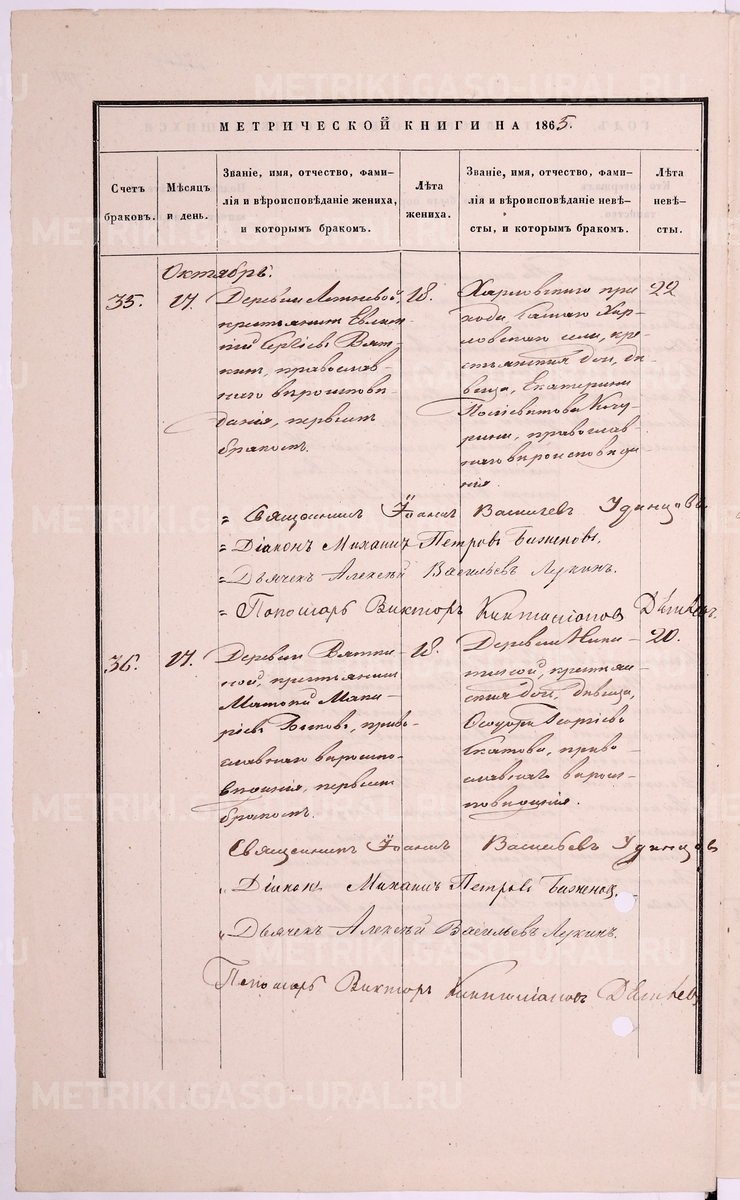 МЕТРИЧЕСКОЙ КНИГИ НА 1865.
Счетъ браковъ.
Мѣсяцъ и день.
Званіе, имя, отчество, фами-
лія и вѣроисповѣданіе жениха,
и которымъ бракомъ.
Лѣта жениха.
Званіе, имя, отчество, фами-
лія и вѣроисповѣданіе невѣ-
сты, и которымъ бракомъ.
Лѣта невѣ-
сты.
Октябрь.
35. 17.
Деревни
крестьянинъ
Сергіевъ Вят-
кинъ, православ-
наго вѣроиспове-
данія, первымъ
бракомъ.
18.
Харловскаго при-
хода самаго Хар-
ловскаго села, кре-
стьянская доч, дѣ-
вица, Екатерина
православ
наго вѣроисповѣда-
нія.
22
= Священникъ Іоаннъ Васильевъ Удинцовъ
= Діаконъ Михаилъ Петровъ Баженовъ.
= Дьячекъ Алексѣй Васильевъ Лукинъ.
= Пономарь Викторъ
36. 17.
Деревни Вятки-
ной, крестьянинъ
Мака-
ріевъ Быковъ, право-
славнаго вѣроиспо-
вѣданія, первымъ
бракомъ.
18.
Деревни Ники-
тиной, крестьян-
ская доч, дѣвица,
Георгіева
право-
славнаго вѣроис-
повѣданія.
20.
Священникъ Іоаннъ Васильевъ Удинцовъ
„ Діаконъ Михаилъ Петровъ Баженовъ.
„ Дьячекъ Алексѣй Васильевъ Лукинъ.
Пономарь Викторъ
METRIKI.GASO-URAL.RU